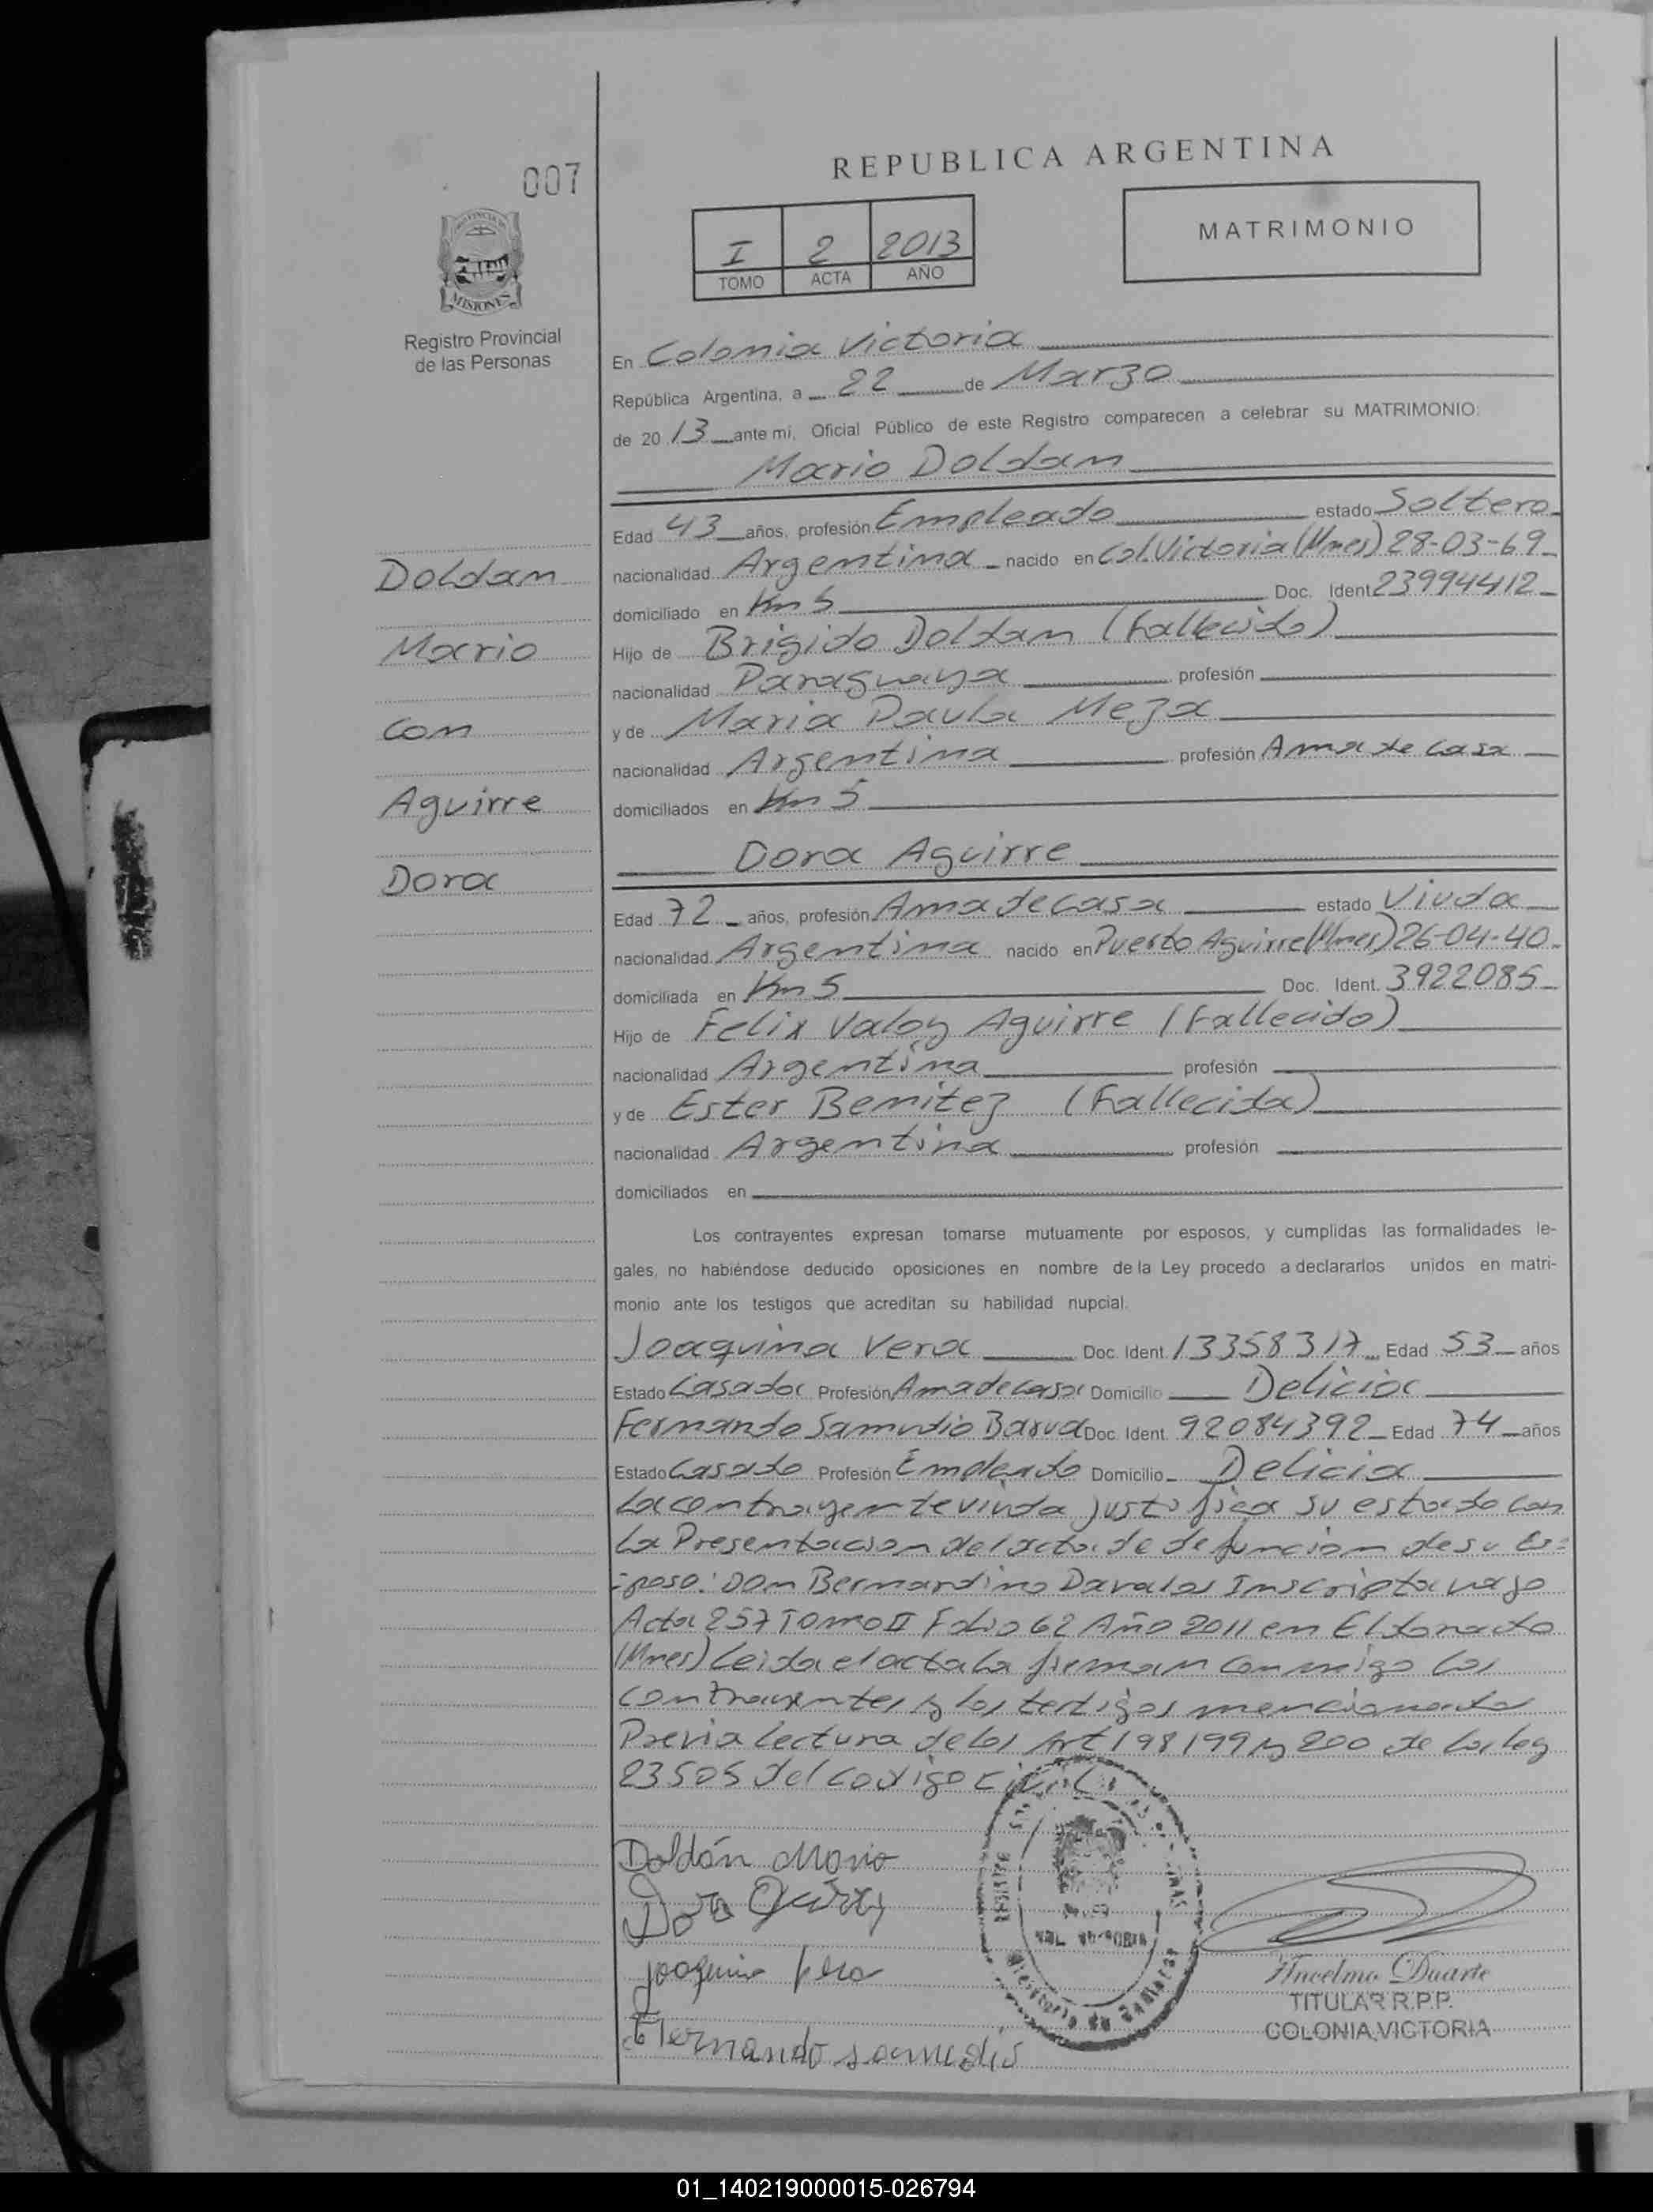 REPUBLICA ARGENTINA
007
MATRIMONIO
I 2 2013
TOMO ACTA AÑO
PROVINCIA DE
MISIONES
Registro Provincial
de las Personas
En Colonia Victoria
República Argentina, a 22 de Marzo
de 2013 ante mi, Oficial Público de este Registro comparecen a celebrar su MATRIMONIO:
Mario Doldan
Edad 43 años, profesión Empleado estado Soltero
Doldan
nacionalidad Argentina nacido en Col. Victoria (Mnes) 28-03-69
domiciliado en Km 5 Doc. Ident 23994412
Mario
Hijo de Brigido Doldan (Fallecido)
nacionalidad Paraguaya profesión
con
y de Maria Paula Meza
nacionalidad Argentina profesión Ama de casa
Aguirre
domiciliados en Km 5
Dora Aguirre
Dora
Edad 72 años, profesión Ama de casa estado Viuda
nacionalidad Argentina nacido en Puerto Aguirre (Mnes) 26-04-40
domiciliada en Km 5 Doc. Ident. 3922085
Hijo de Felix Valoy Aguirre (Fallecido)
nacionalidad Argentina profesión
y de Ester Benitez (Fallecida)
nacionalidad Argentina profesión
domiciliados en
Los contrayentes expresan tomarse mutuamente por esposos, y cumplidas las formalidades le-
gales, no habiéndose deducido oposiciones en nombre de la Ley procedo a declararlos unidos en matri-
monio ante los testigos que acreditan su habilidad nupcial.
Joaquina Vera Doc. Ident. 13358317 Edad 53 años
Estado Casada Profesión Ama de casa Domicilio Delicia
Fernando Samudio Barua Doc. Ident. 92084392 Edad 74 años
Estado Casado Profesión Empleado Domicilio Delicia
La contrayente viuda justifica su estado con
La Presentacion del acta de defuncion de su Es-
-poso: Don Bernardino Davalos Inscripta vajo
Acta 257 Tomo II Folio 62 Año 2011 en Eldorado
(Mnes) Leida el acta La firman conmigo los
contrayentes y los testigos mencionado
Previa lectura de los Art 198 199 y 200 de la Ley
23505 del codigo civil
Doldán Mario
Dora
Joaquina Vera
Fernando samudio
Anselmo Duarte
TITULAR R.P.P.
COLONIA VICTORIA
01_140219000015-026794